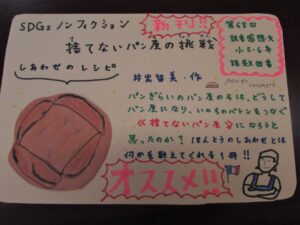 SDGsノンフィクション
新刊!!
捨てないパン屋の挑戦
しあわせのレシピ
第68回
読書感想文
小5・6年
課題図書
井出留美・作
パンぎらいのパン屋の子は、どうして
パン屋になり、いのちのバトンをつなぐ
《捨てないパン屋》になろうと
思ったのか？ほんとうのしあわせとは
何かを教えてくれる1冊!!
オススメ!!